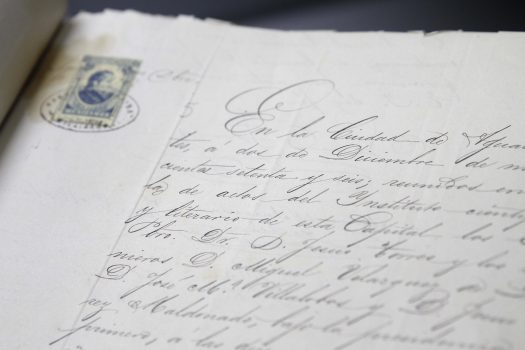 En la Ciudad de Agua
tes, á dos de Diciembre de m
cientos setenta y seis, reunidos en
la de actos del Instituto cientí
y literario de esta Capital los
Pbro. Dr. D. Jesús Torres y los
nieros D. Miguel Velazquez de
D. José Mª Villalobos y D. Juan
rey Maldonado, bajo la presidencia
primero, á las